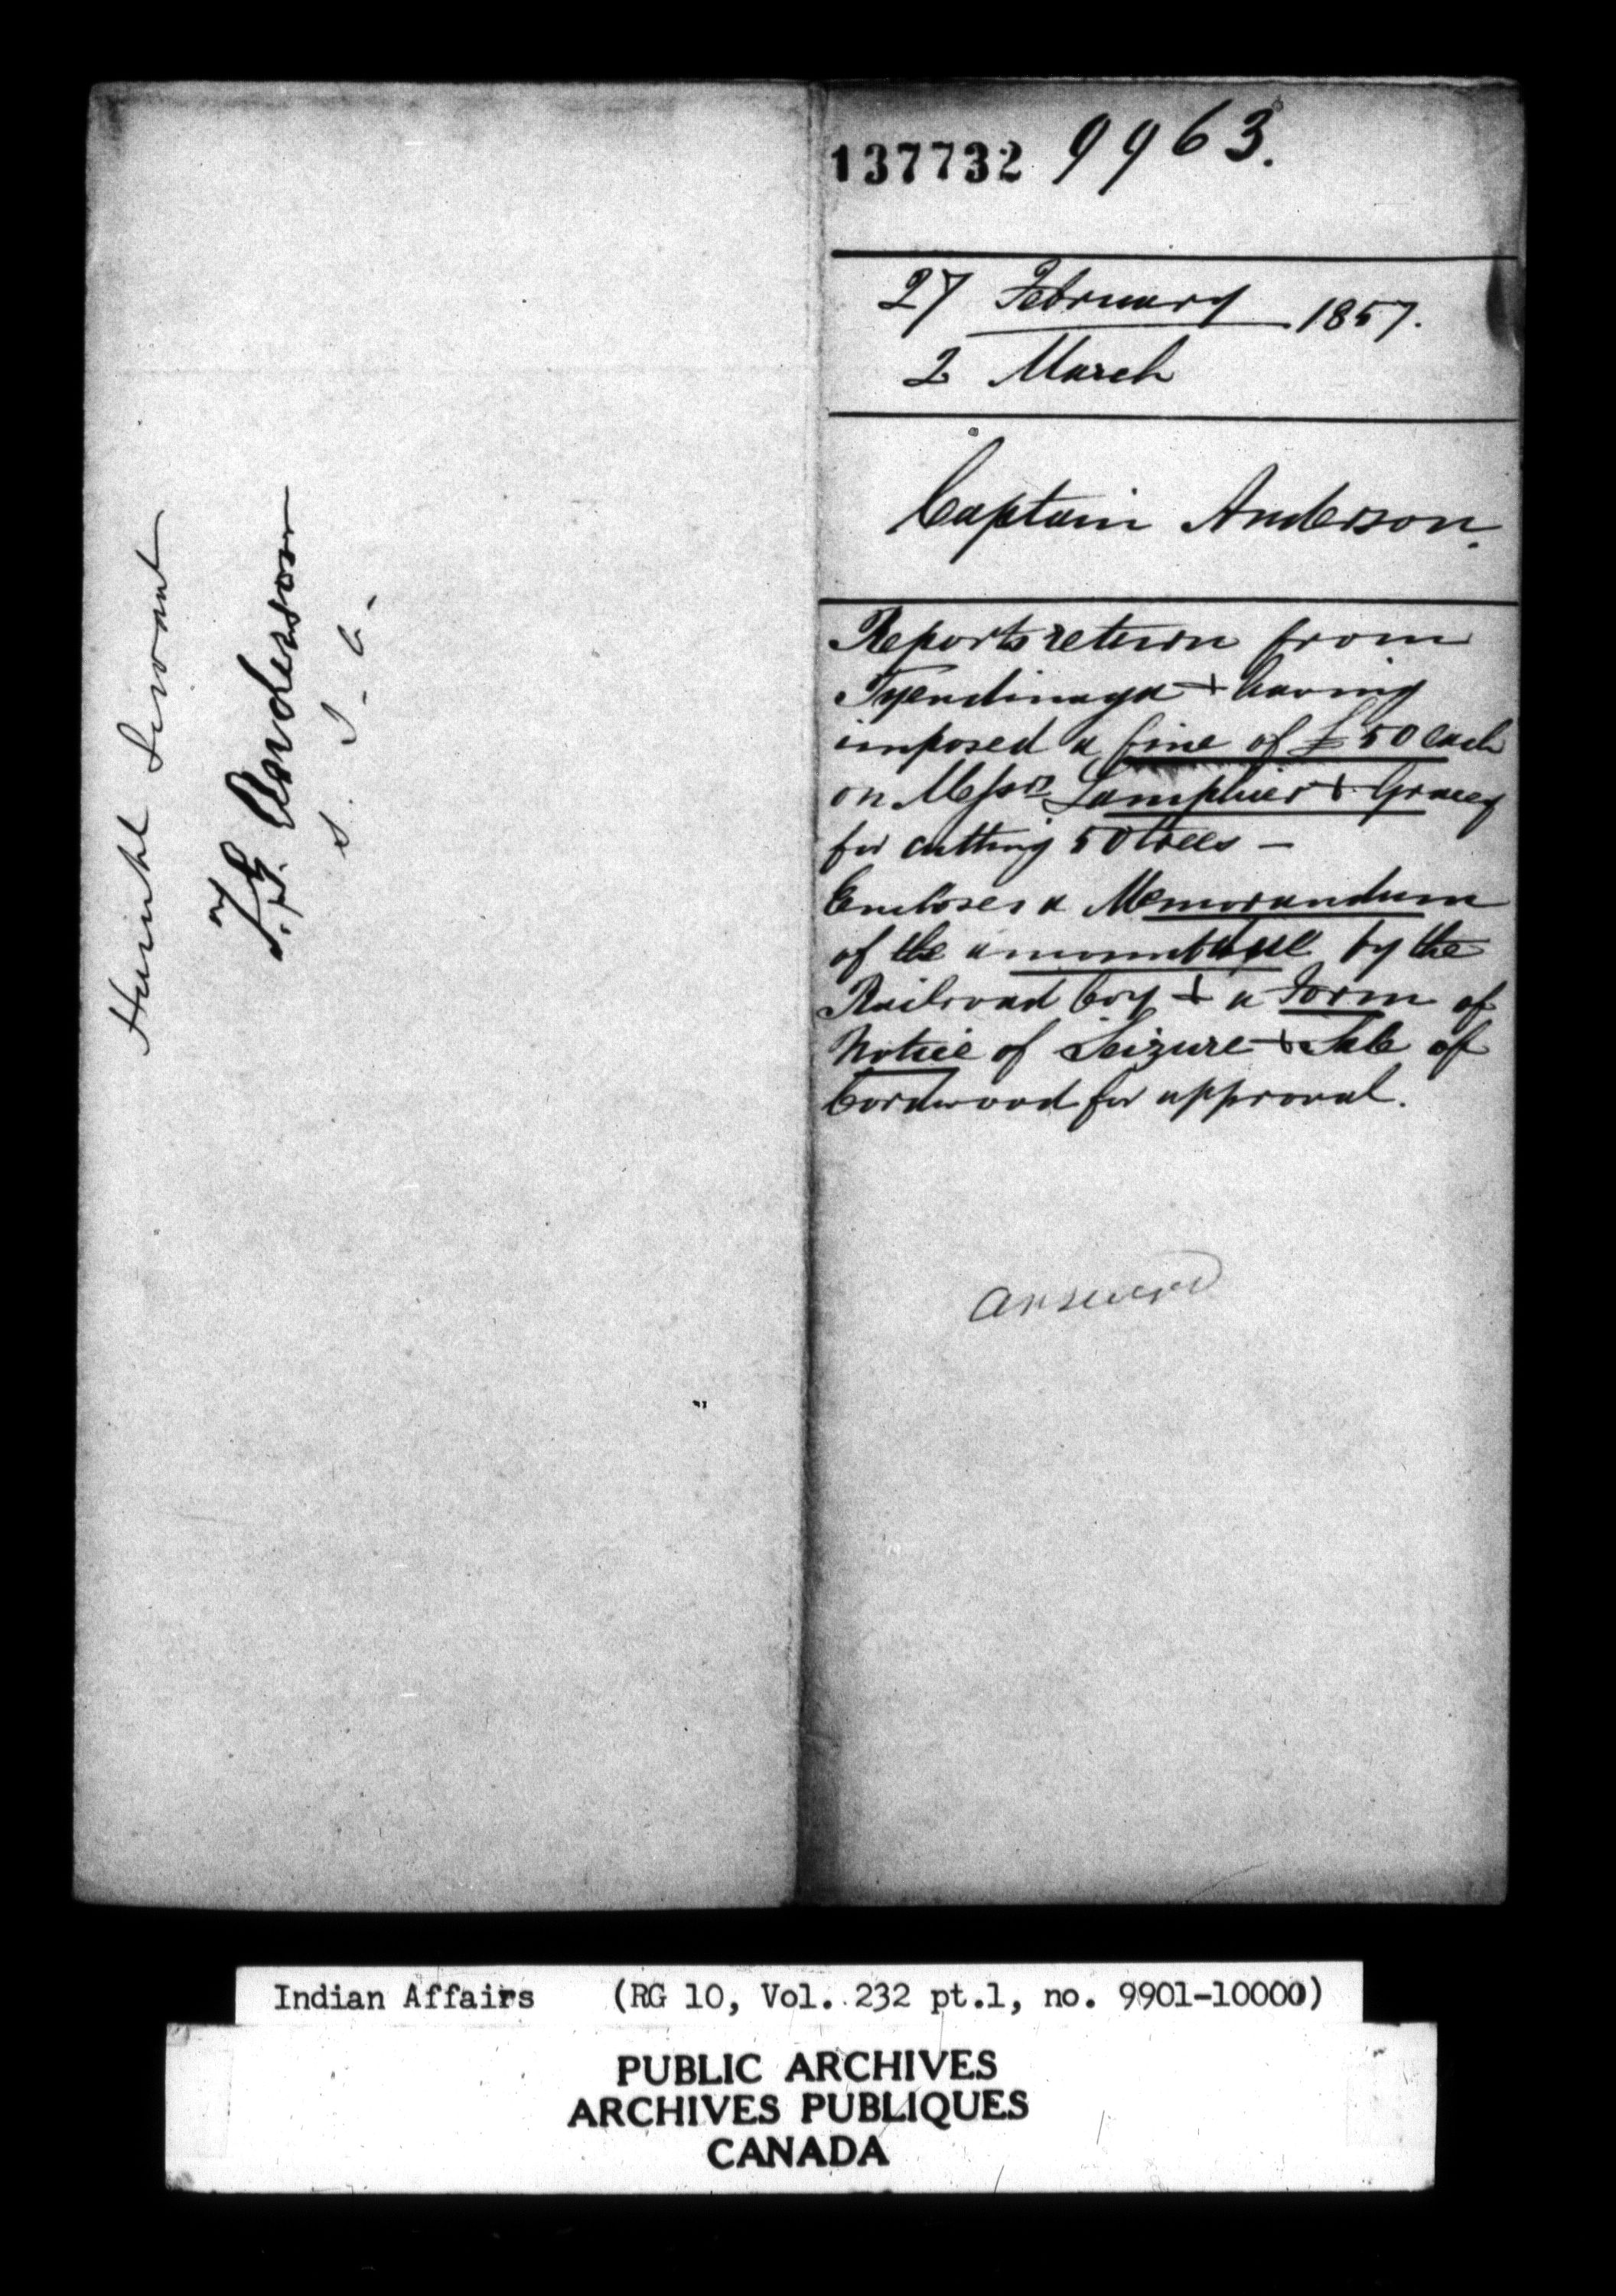 Humble Servant
T. G. Anderson
S. I. A.
137732 9963.
27 February 1857.
2 March
Captain Anderson.
Reports return from
Tyendinaga + having
imposed a fine of £50 each
on Messrs Lamphier + Gracey
for cutting 50 trees —
Encloses a Memorandum
of the amount due by the
Railroad Coy + a Form of
Notice of Seizure + Sale of
Cordwood for approval.
answered
Indian Affairs (RG 10, Vol. 232 pt.1, no. 9901-10000)
PUBLIC ARCHIVES
ARCHIVES PUBLIQUES
CANADA